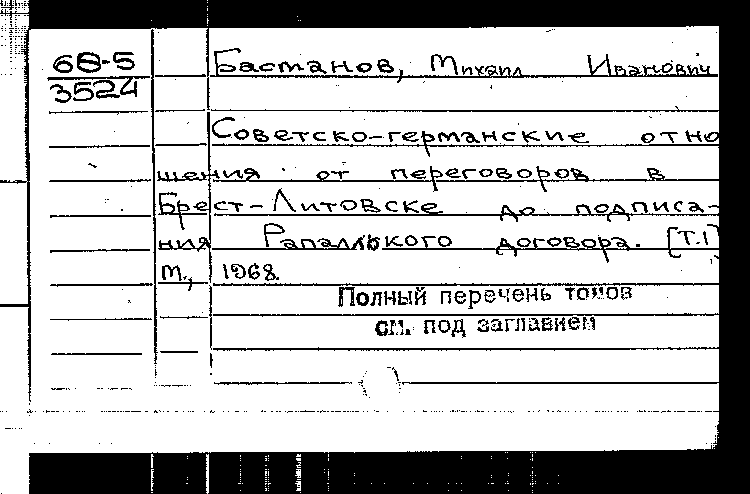 68-5
3524
Бастанов, Михаил Иванович
Советско-германские отно
шения от переговоров в
Брест-Литовске до подписа-
ния Рапалльского договора. [Т.1]
М., 1968.
Полный перечень томов
см. под заглавием